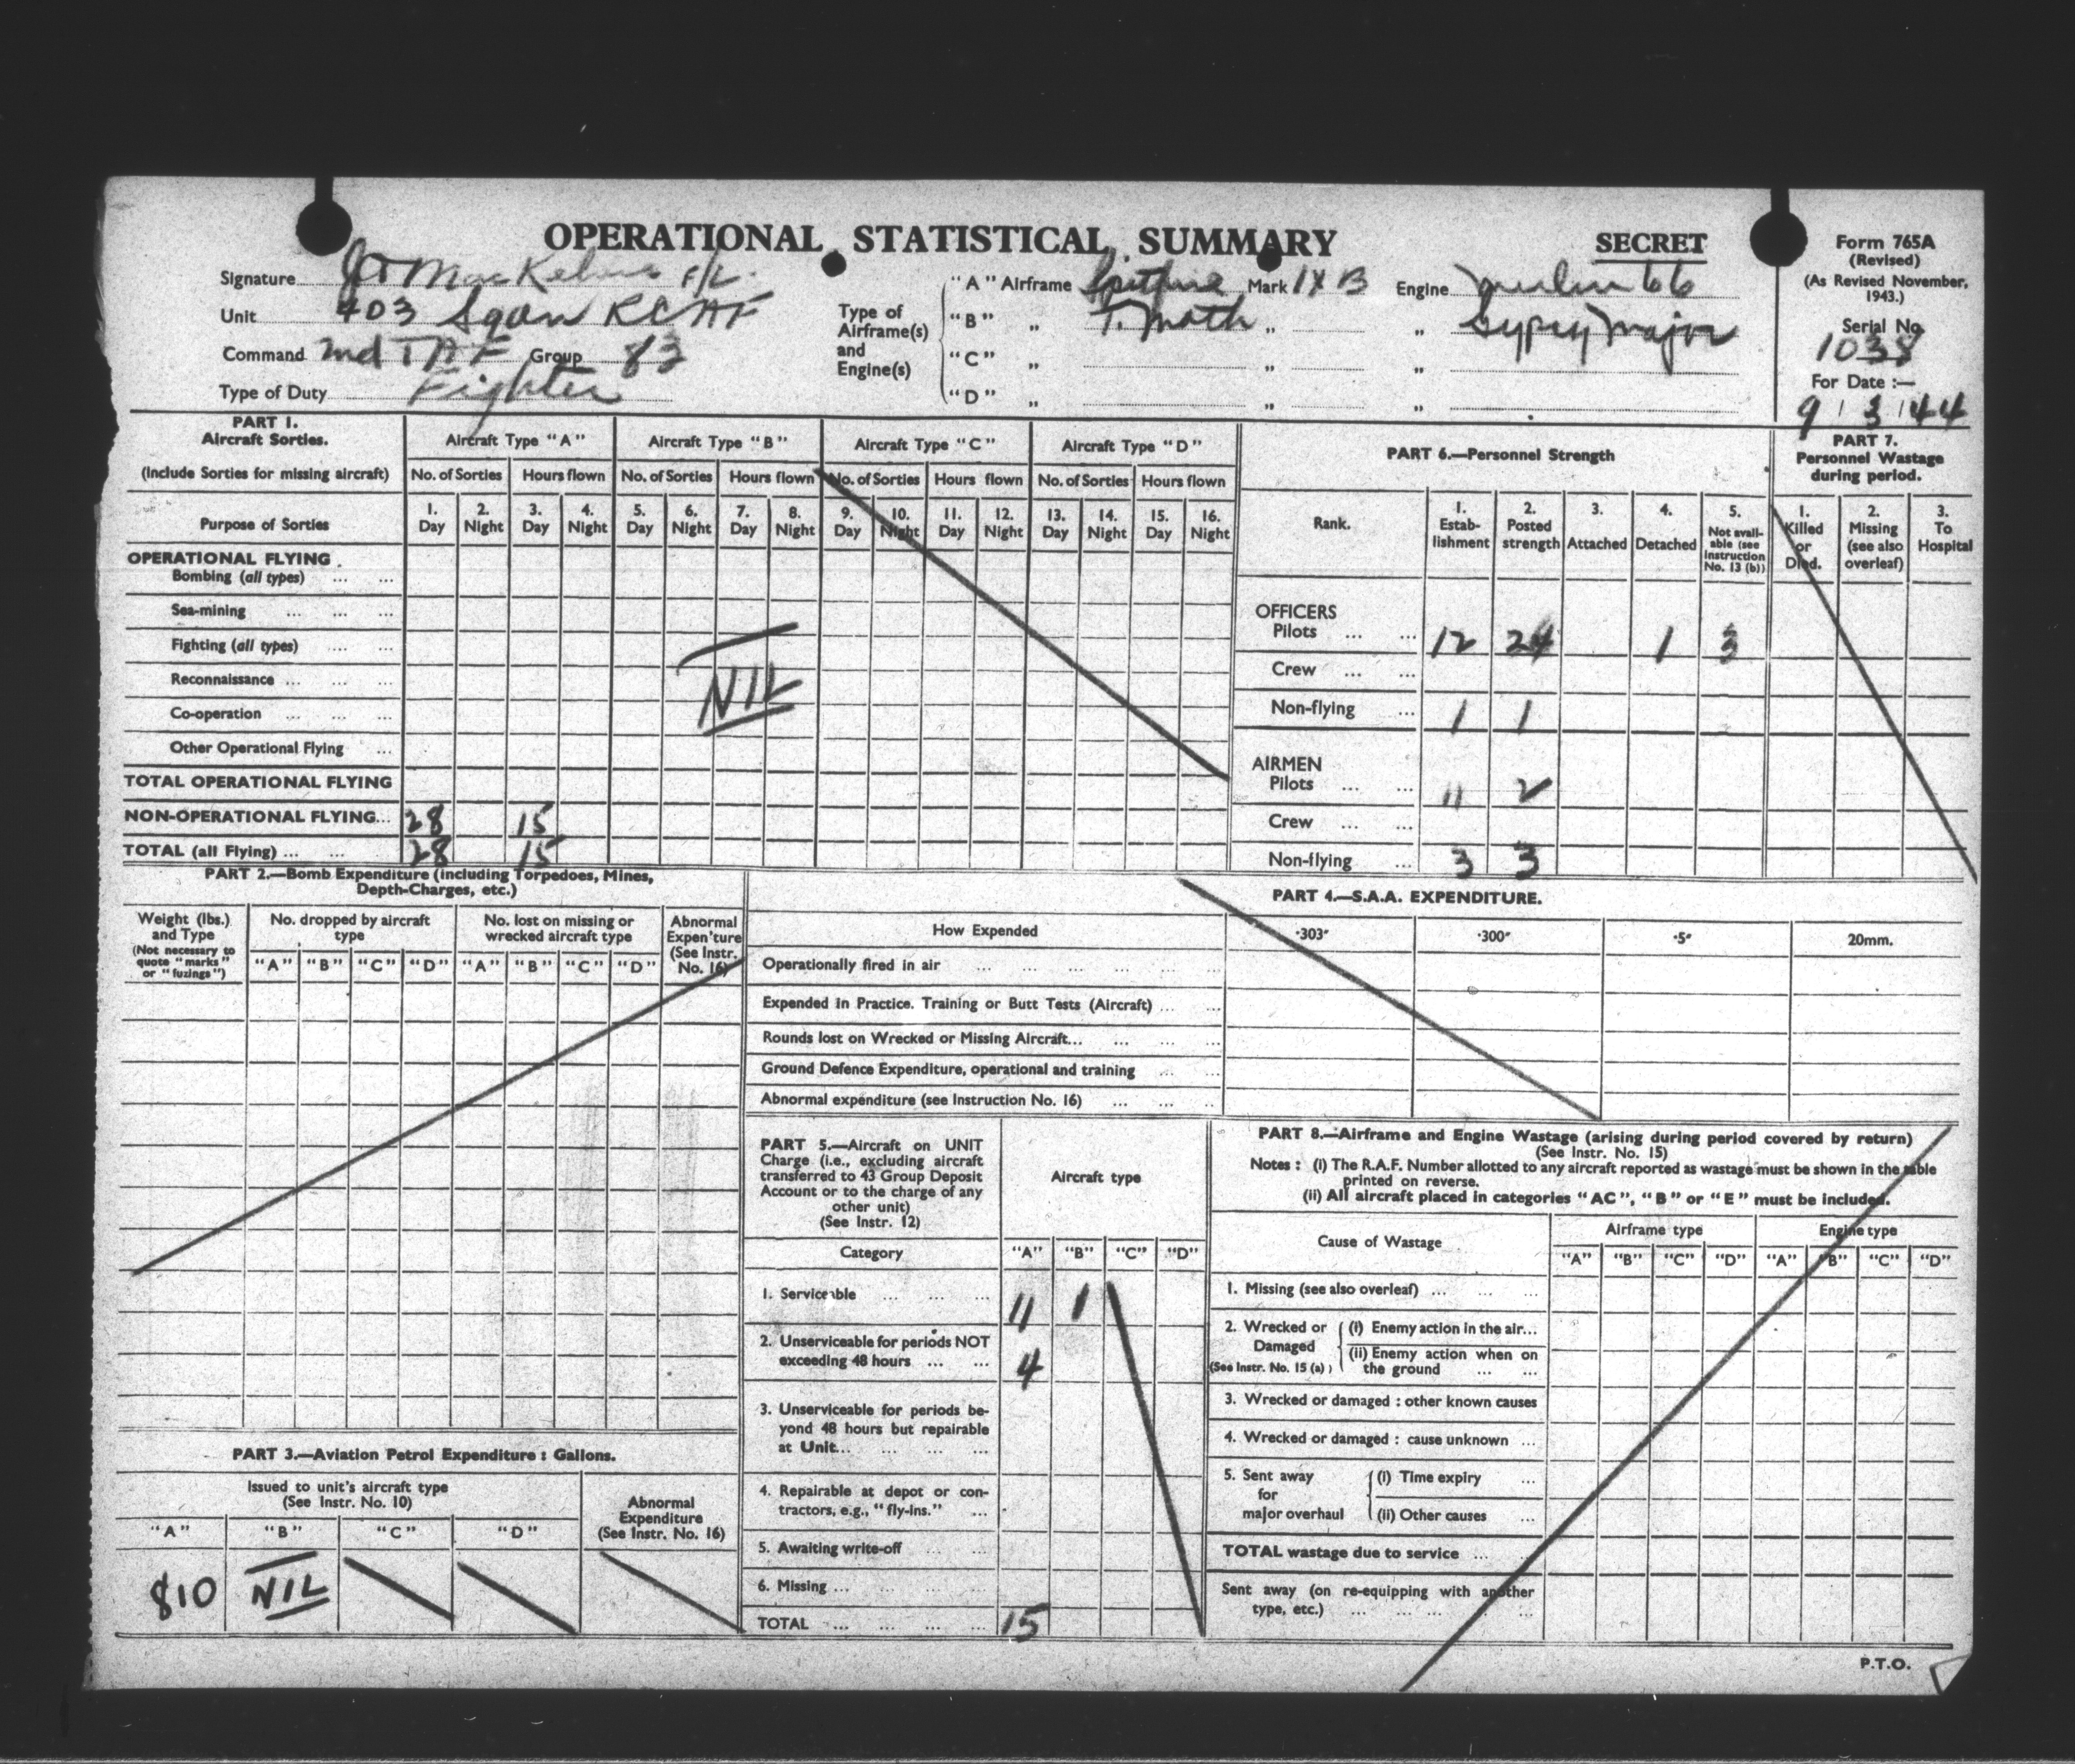 OPERATIONAL STATISTICAL SUMMARY
SECRET
Form 765A
(Revised)
(As Revised November, 1943.)
Signature F/L.
Unit 403 Sqdn RCAF
Command 2nd TAF Group 83
Type of Duty Fighter
Type of Airframe(s) and Engine(s)
"A" Airframe Spitfire Mark IX B Engine Merlin 66
"B" „ T. Moth „ „ Gypsy Major
"C" „ „ „
"D" „ „ „
Serial No.
1038
For Date :—
9 3 44
PART I.
Aircraft Sorties.
(Include Sorties for missing aircraft)
Purpose of Sorties
Aircraft Type "A" Aircraft Type "B" Aircraft Type "C" Aircraft Type "D"
No. of Sorties Hours flown No. of Sorties Hours flown No. of Sorties Hours flown No. of Sorties Hours flown
1. Day 2. Night 3. Day 4. Night 5. Day 6. Night 7. Day 8. Night 9. Day 10. Night 11. Day 12. Night 13. Day 14. Night 15. Day 16. Night
OPERATIONAL FLYING
Bombing (all types) ... ...
Sea-mining ... ... ...
Fighting (all types) ... ...
Reconnaissance ... ... ...
Co-operation ... ... ...
Other Operational Flying ...
NIL
TOTAL OPERATIONAL FLYING
NON-OPERATIONAL FLYING... 28 15
TOTAL (all Flying) ... ... 28 15
PART 6.—Personnel Strength
Rank.
1. Estab-lishment
2. Posted strength
3. Attached
4. Detached
5. Not avail-able (see Instruction No. 13 (b))
OFFICERS
Pilots ... ... 12 24 1 3
Crew ... ...
Non-flying ... 1 1
AIRMEN
Pilots ... ... 11 2
Crew ... ...
Non-flying ... 3 3
PART 7.
Personnel Wastage during period.
1. Killed or Died.
2. Missing (see also overleaf)
3. To Hospital
PART 2.—Bomb Expenditure (including Torpedoes, Mines,
Depth-Charges, etc.)
Weight (lbs.) and Type
(Not necessary to quote "marks" or "fuzings")
No. dropped by aircraft type
No. lost on missing or wrecked aircraft type
Abnormal Expen'ture (See Instr. No. 16)
"A" "B" "C" "D" "A" "B" "C" "D"
PART 4.—S.A.A. EXPENDITURE.
How Expended ·303" ·300" ·5" 20mm.
Operationally fired in air ... ... ... ... ... ...
Expended in Practice. Training or Butt Tests (Aircraft) ... ...
Rounds lost on Wrecked or Missing Aircraft... ... ... ...
Ground Defence Expenditure, operational and training ... ...
Abnormal expenditure (see Instruction No. 16) ... ... ..
PART 3.—Aviation Petrol Expenditure : Gallons.
Issued to unit's aircraft type
(See Instr. No. 10)
Abnormal Expenditure (See Instr. No. 16)
"A" "B" "C" "D"
810 NIL
PART 5.—Aircraft on UNIT
Charge (i.e., excluding aircraft
transferred to 43 Group Deposit
Account or to the charge of any
other unit)
(See Instr. 12)
Aircraft type
Category "A" "B" "C" "D"
1. Serviceable ... ... ... 11 1
2. Unserviceable for periods NOT
exceeding 48 hours ... ... 4
3. Unserviceable for periods be-
yond 48 hours but repairable
at Unit... ... ... ...
4. Repairable at depot or con-
tractors, e.g., "fly-ins." ...
5. Awaiting write-off ... ...
6. Missing ... ... ... ...
TOTAL ... ... ... ... 15
PART 8.—Airframe and Engine Wastage (arising during period covered by return)
(See Instr. No. 15)
Notes : (i) The R.A.F. Number allotted to any aircraft reported as wastage must be shown in the table
printed on reverse.
(ii) All aircraft placed in categories "AC", "B" or "E" must be included.
Cause of Wastage Airframe type Engine type
"A" "B" "C" "D" "A" "B" "C" "D"
1. Missing (see also overleaf) ... ... ...
2. Wrecked or Damaged (See Instr. No. 15 (a))
(i) Enemy action in the air...
(ii) Enemy action when on
the ground ... ...
3. Wrecked or damaged : other known causes
4. Wrecked or damaged : cause unknown ...
5. Sent away for major overhaul
(i) Time expiry ...
(ii) Other causes ...
TOTAL wastage due to service ... ...
Sent away (on re-equipping with another
type, etc.) ... ... ... ... ...
P.T.O.